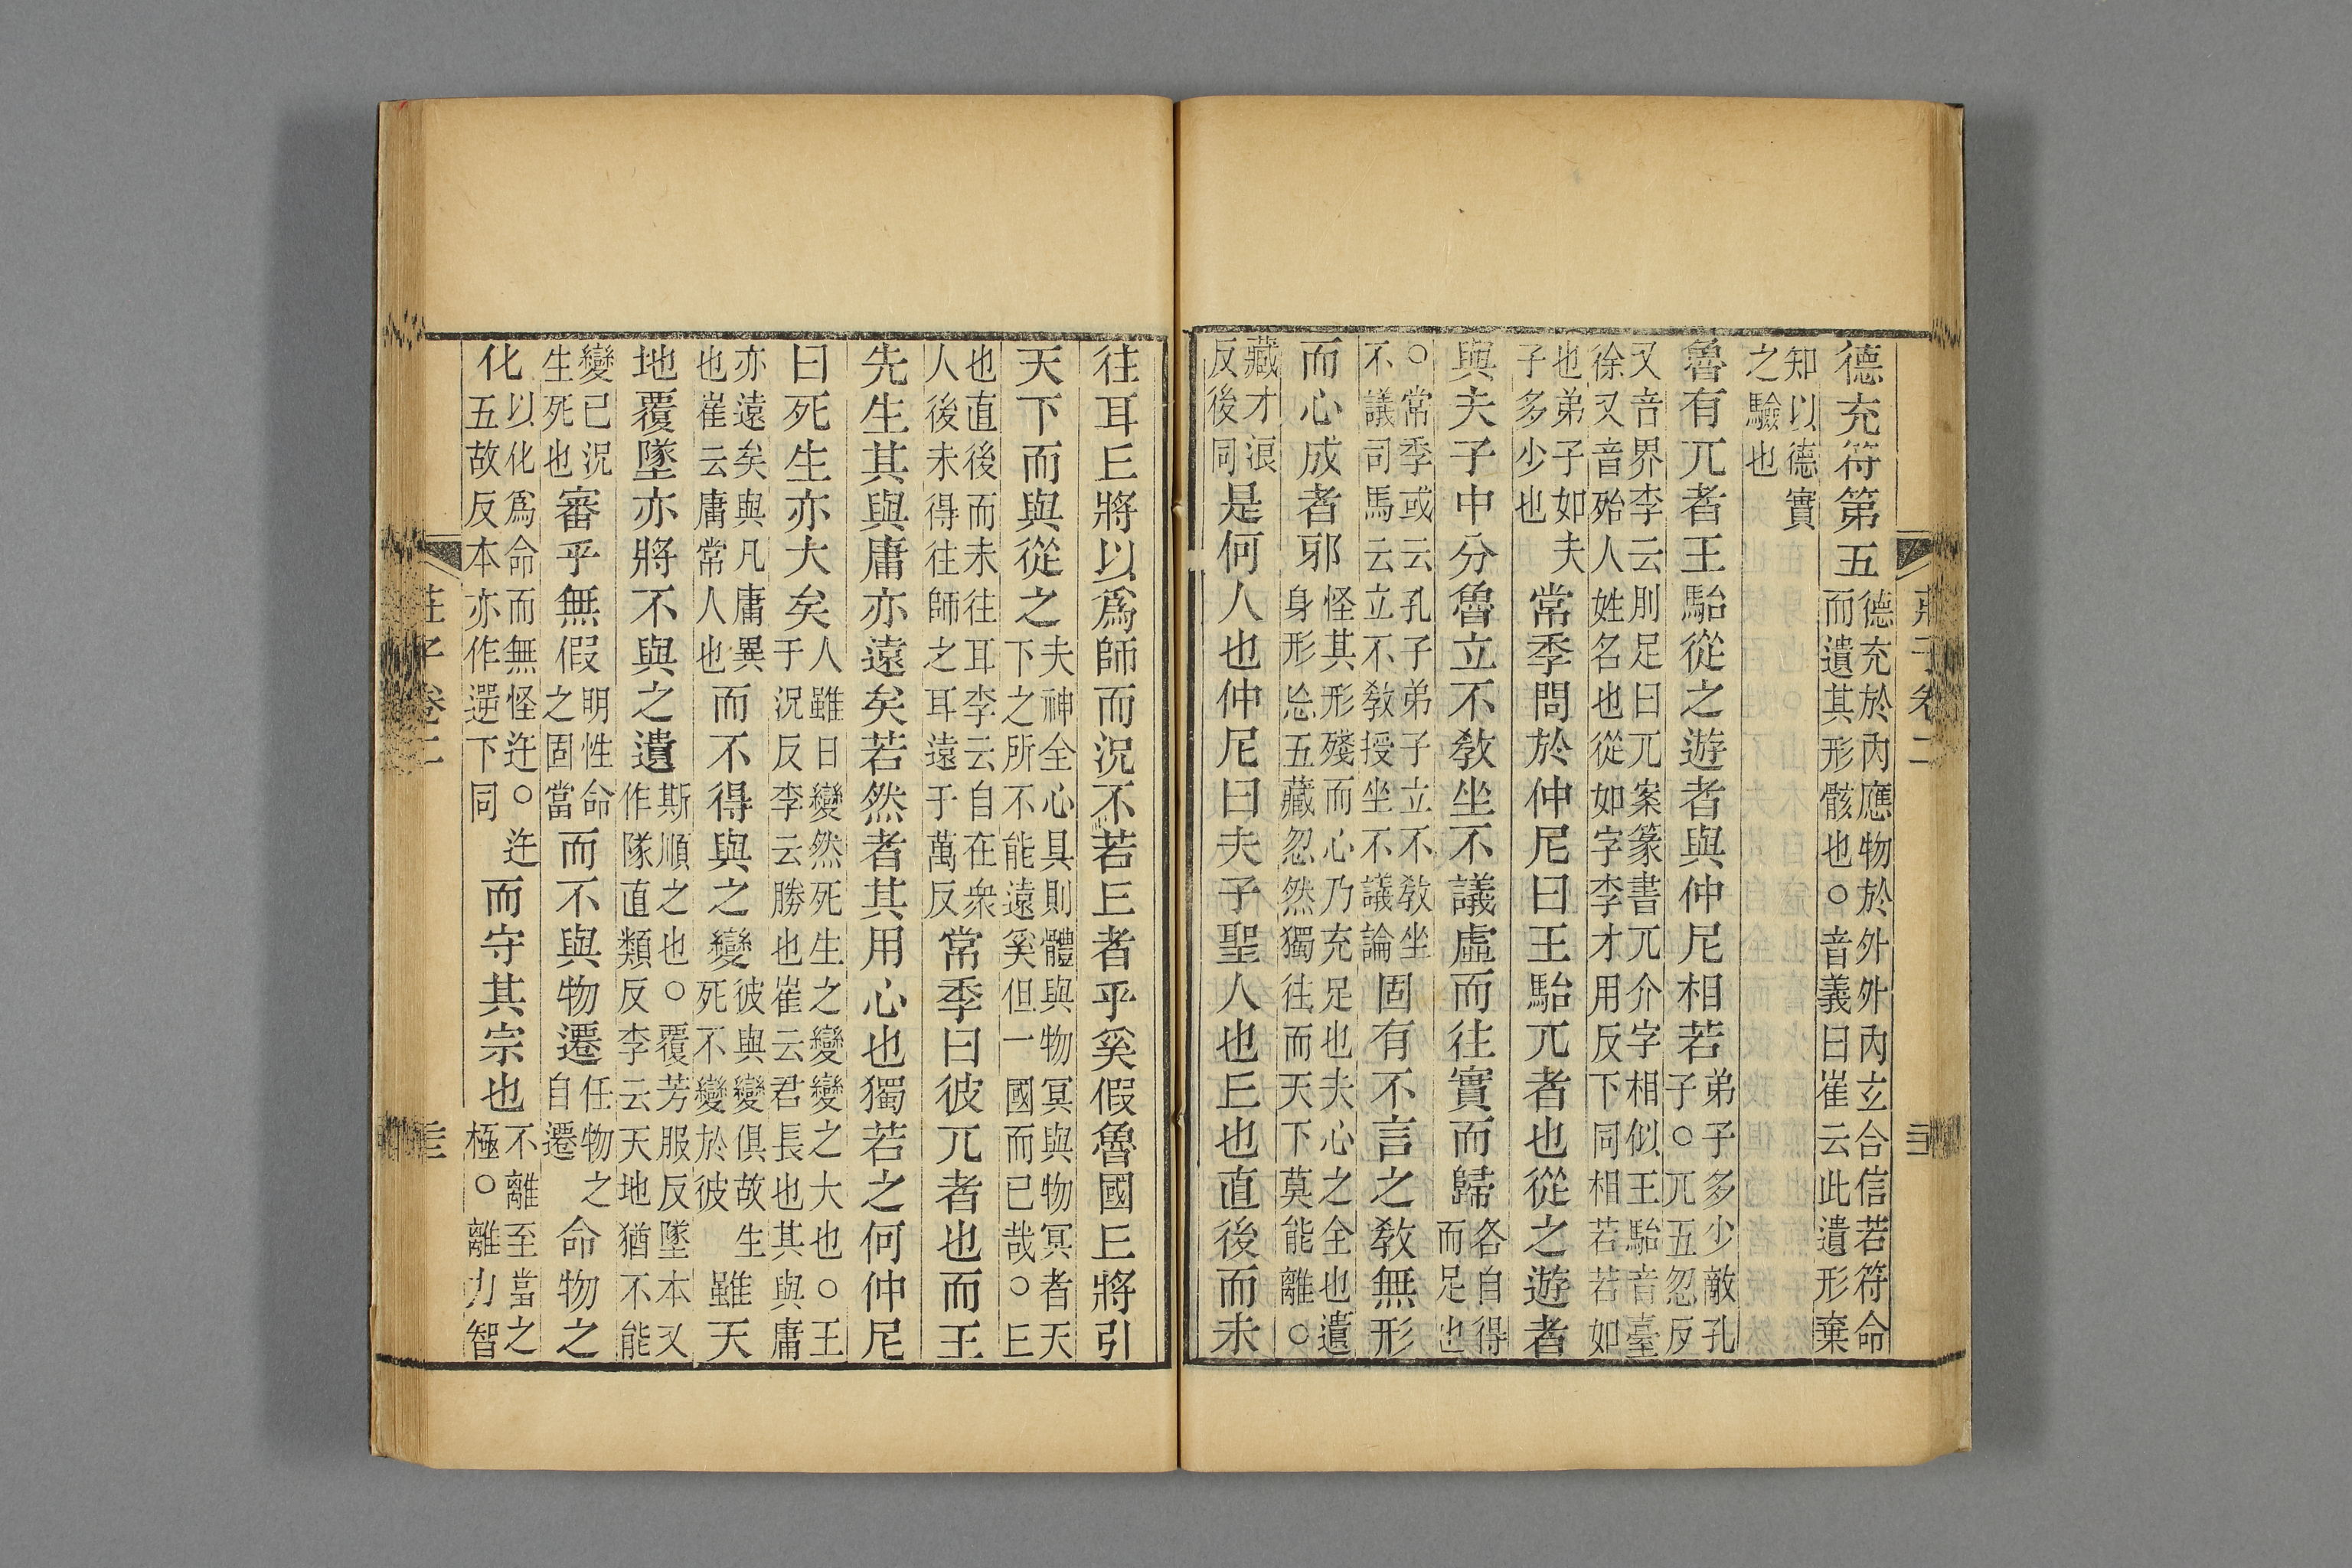 德充符第五德充於內應物於外外內玄合信若符命
而遺其形骸也○音義曰崔云此遺形棄
知以德實
之驗也
魯有兀者王駘從之遊者與仲尼相若弟子多少敵孔
子○兀五忽反
又音界李云刖足曰兀案篆書兀介字相似王駘音臺
徐又音殆人姓名也從如字李才用反下同相若若如
也弟子如夫
子多少也常季問於仲尼曰王駘兀者也從之遊者
與夫子中分魯立不教坐不議虛而往實而歸各自得
而足也
○常季或云孔子弟子立不教坐
不議司馬云立不教授坐不議論固有不言之教無形
而心成者邪怪其形殘而心乃充足也夫心之全也遺
身形忘五藏忽然獨往而天下莫能離○
藏才浪
反後同是何人也仲尼曰夫子聖人也𠀉也直後而未
往耳𠀉將以爲師而況不若𠀉者乎奚假魯國𠀉將引
天下而與從之夫神全心具則體與物冥與物冥者天
下之所不能遠奚但一國而已哉○𠀉
也直後而未往耳李云自在衆
人後未得往師之耳遠于萬反常季曰彼兀者也而王
先生其與庸亦遠矣若然者其用心也獨若之何仲尼
曰死生亦大矣人雖日變然死生之變變之大也○王
于況反李云勝也崔云君長也其與庸
亦遠矣與凡庸異
也崔云庸常人也而不得與之變彼與變俱故生
死不變於彼雖天
地覆墜亦將不與之遺斯順之也○覆芳服反墜本又
作隊直類反李云天地猶不能
變已況
生死也審乎無假明性命
之固當而不與物遷任物之
自遷命物之
化以化爲命而無怪迕○迕
五故反本亦作遻下同而守其宗也不離至當之
極○離力智